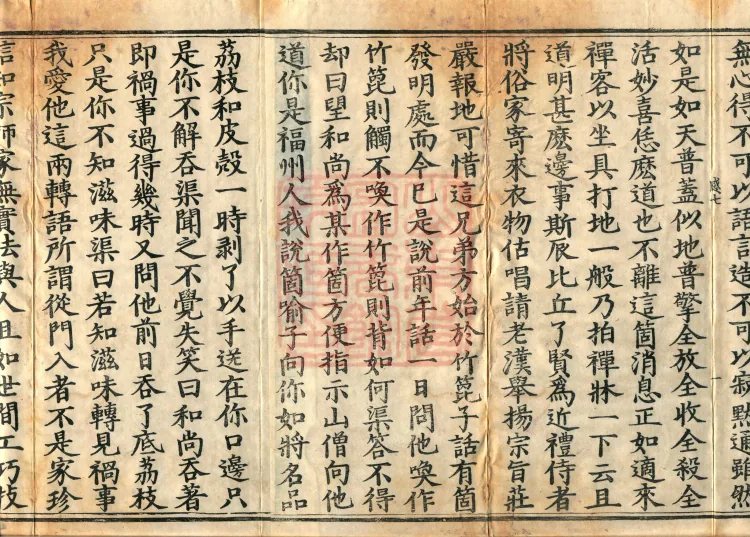 無心得不可以語言造不可以寂默通雖然
如是如天普蓋似地普擎全放全收全殺全
活妙喜恁麽道也不離這箇消息正如適來
禪客以坐具打地一般乃拍禪牀一下云且
道明甚麽邊事斯辰比丘了賢爲近禮侍者
將俗家寄來衣物估唱請老漢舉揚宗旨莊
嚴報地可惜這兄弟方始於竹箆子話有箇
發明處而今已是說前年話一日問他喚作
竹箆則觸不喚作竹箆則背如何渠答不得
却曰望和尚爲某作箇方便指示山僧向他
道你是福州人我說箇喻子向你如將名品
荔枝和皮殼一時剥了以手送在你口邊只
是你不解吞渠聞之不覺失笑曰和尚吞著
即禍事過得幾時又問他前日吞了底荔枝
只是你不知滋味渠曰若知滋味轉見禍事
我愛他這兩轉語所謂從門入者不是家珍
信知宗師家無實法與人且如世間工巧技